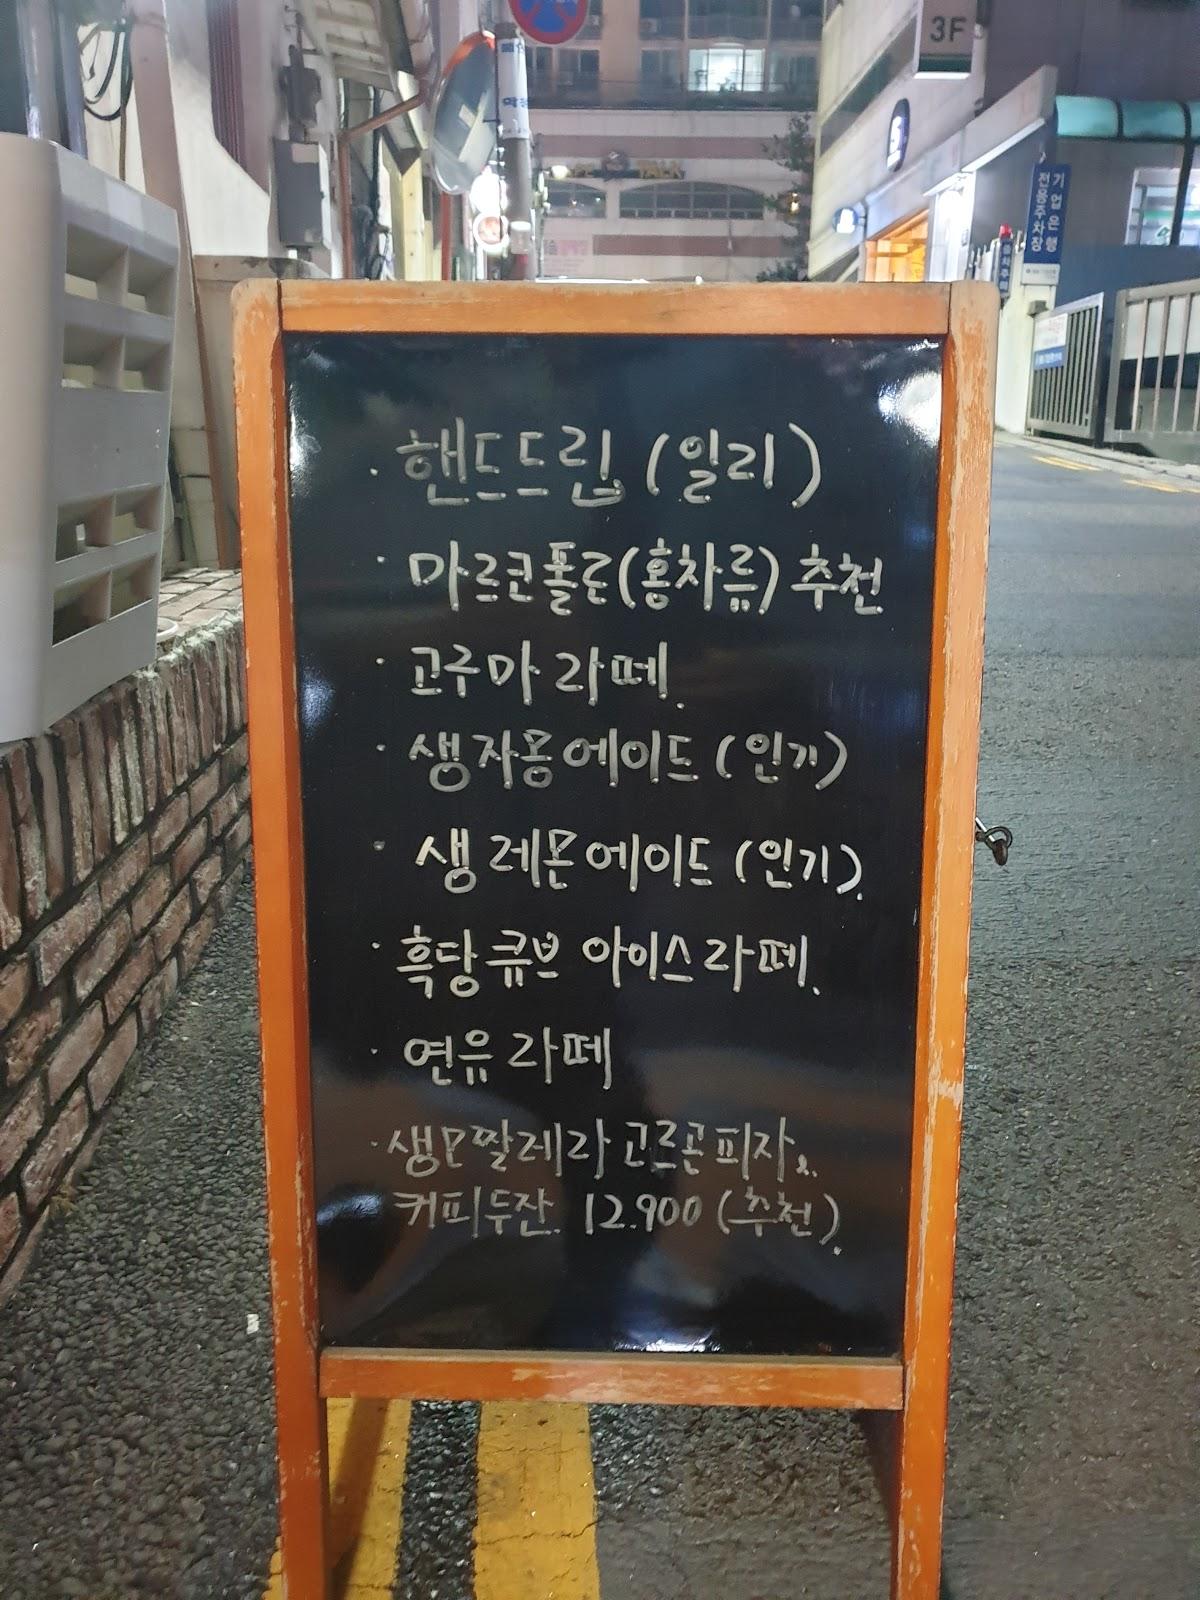 3F
기업은행
전용주차장
· 핸드드립 (일리)
· 마르코폴로(홍차류) 추천
· 고구마 라떼.
· 생자몽에이드 (인기)
· 생 레몬에이드 (인기).
· 흑당큐브 아이스라떼.
· 연유라떼
· 생모짤레라 고르곤피자&
커피두잔. 12.900 (추천).